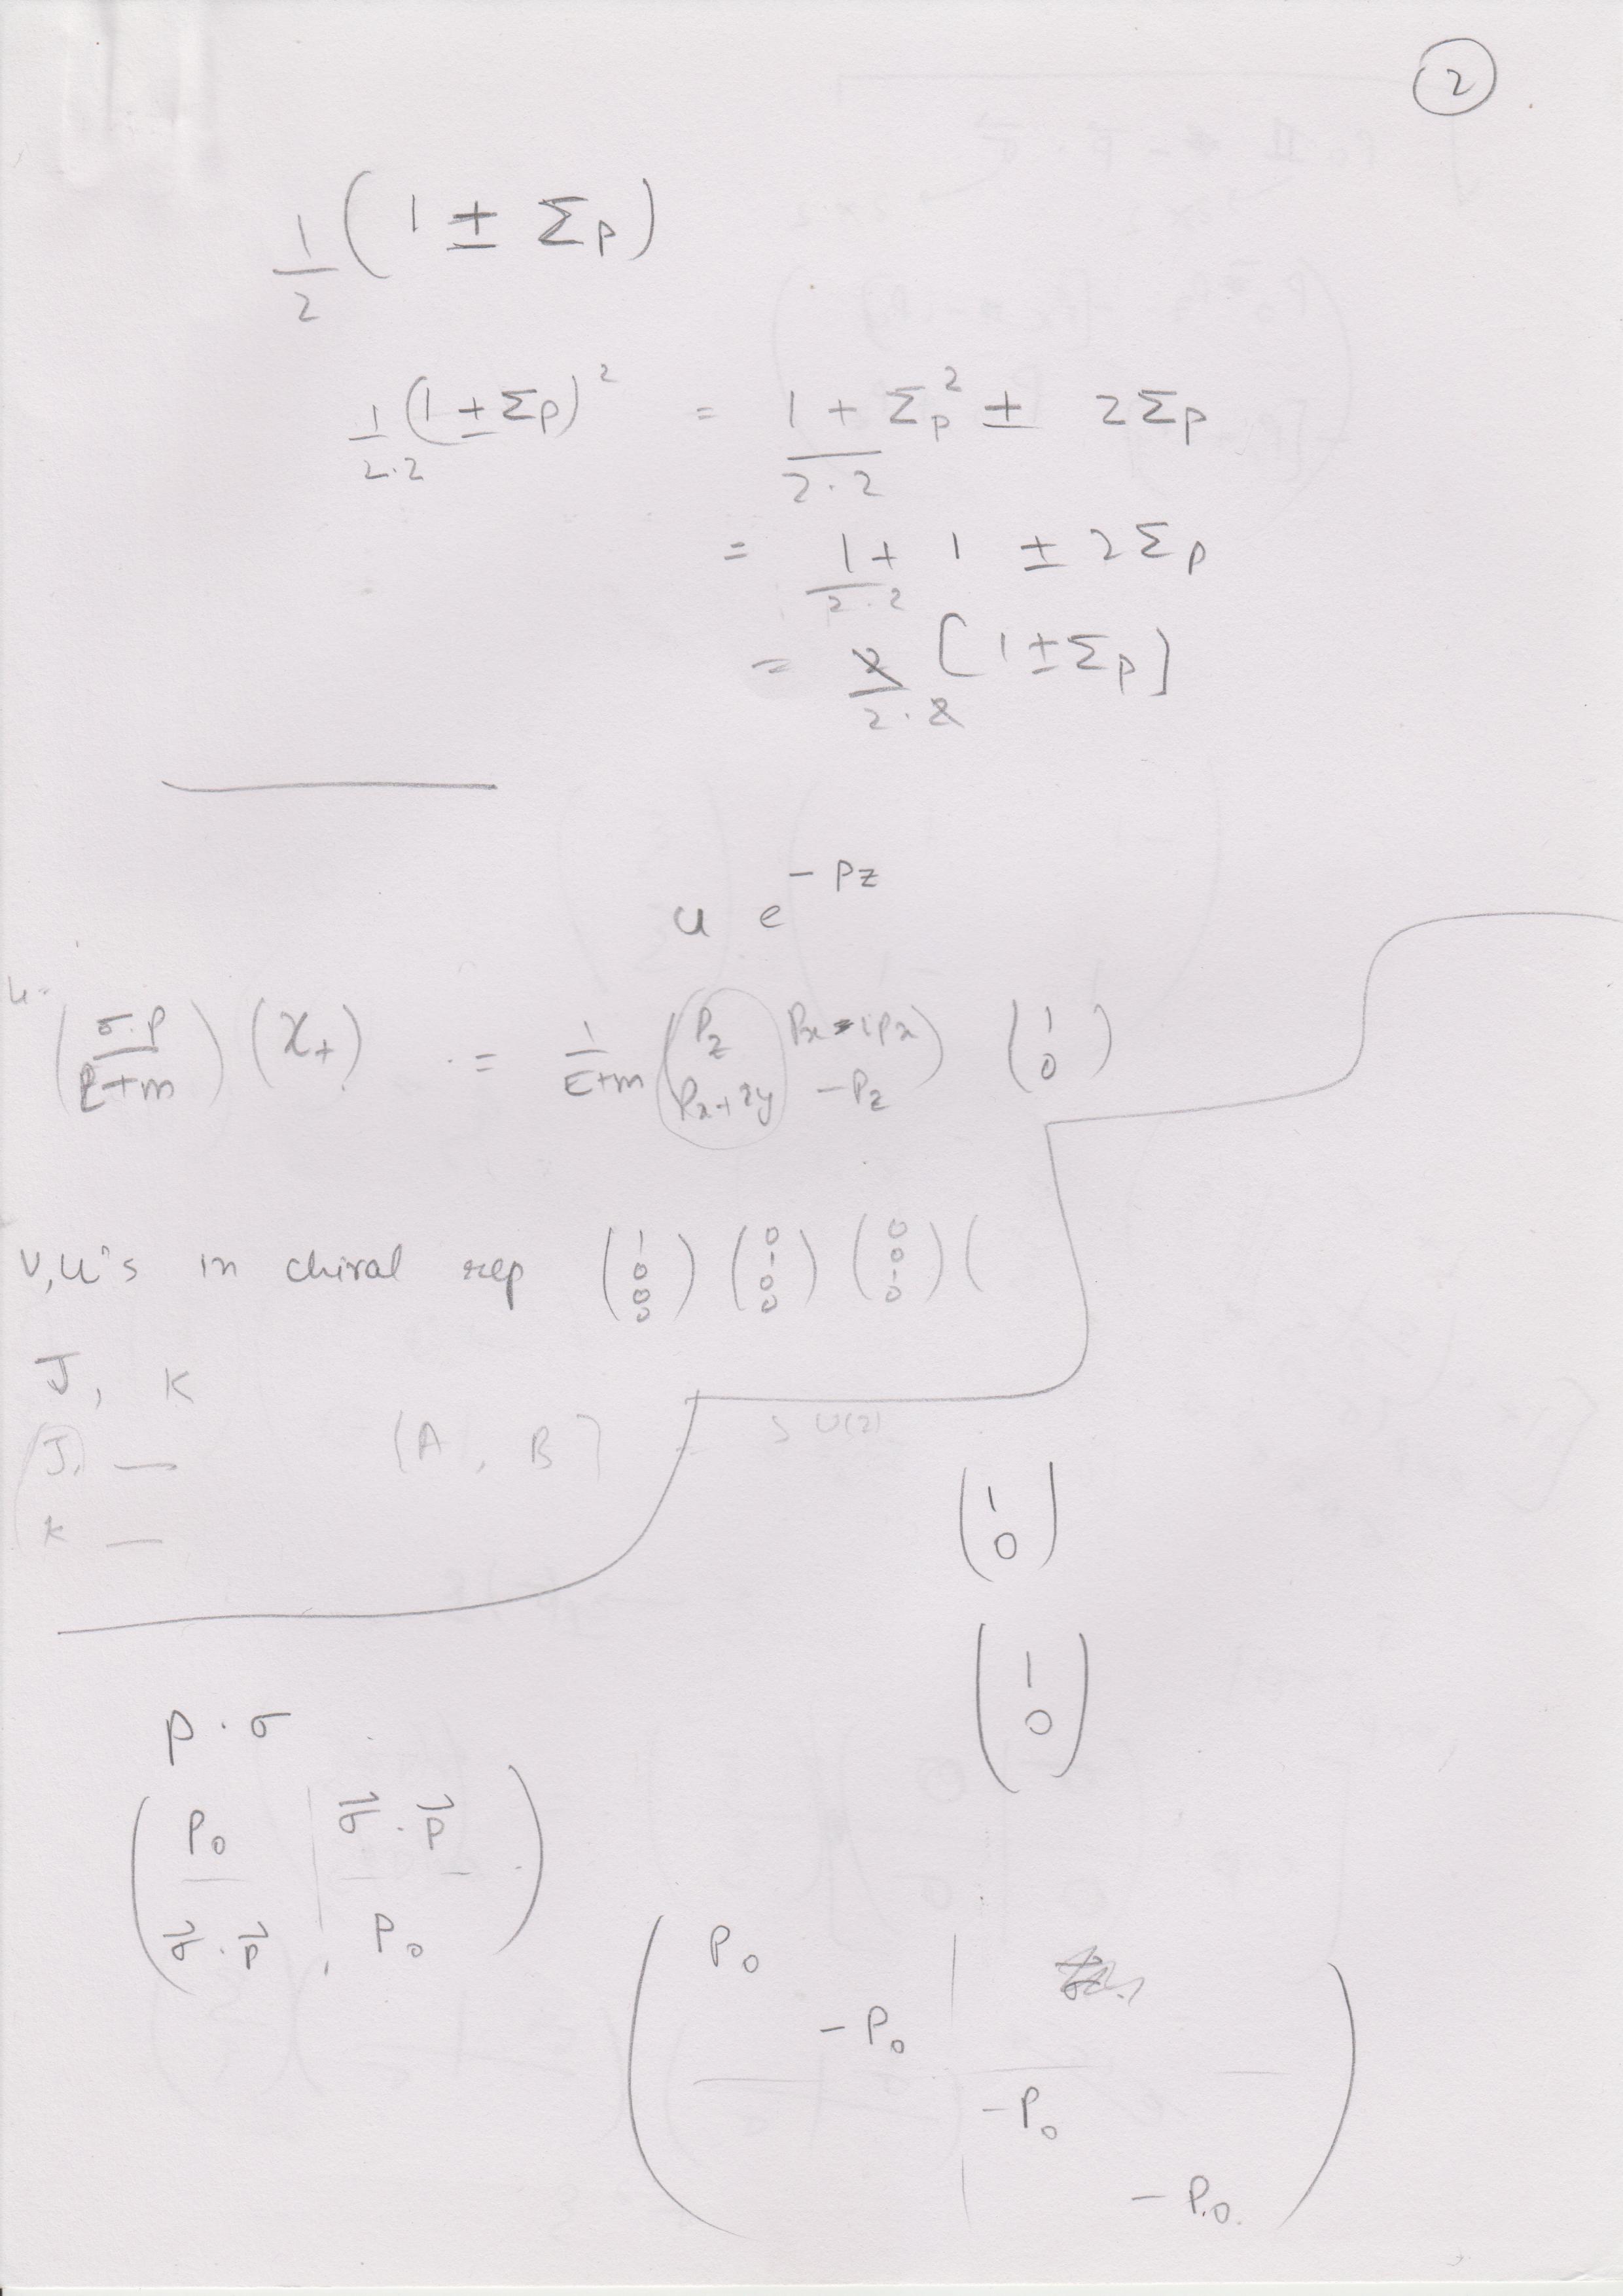 2
1/2 (1 ± Σp)
1/2.2 (1 ± Σp)² = 1 + Σp² ± 2Σp / 2.2
= 1 + 1 ± 2Σp / 2.2
= 2/2.2 [1 ± Σp]
u e^-pz
u =
(σ.p / E+m) (χ+) = 1/E+m (Pz Px-iPx) (1)
(Px+iy -Pz) (0)
v,u's in chiral rep (1 0 0 0) (0 1 0 0) (0 0 1 0) (
J, K
J, — (A, B] = SU(2)
K —
(1 0)
(1 0)
p.σ
(P0 | σ⃗.p⃗)
(σ⃗.p⃗ | P0)
(P0
-P0
-P0
-P0)